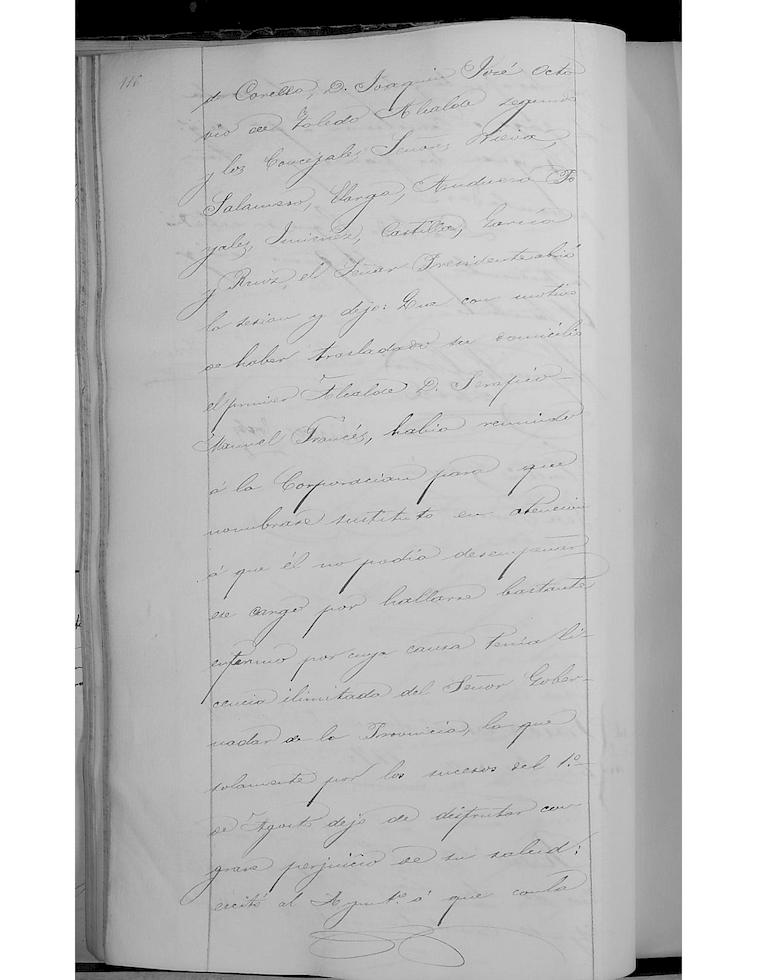 116
de Corella, D. Joaquin José Octa
vio de Toledo Alcalde segundo
y los Concejales Señores Viena,
Salamero, Elarga,
yales, Jimenez, Castilla, Garcia
y Ruiz, el Señor Presidente abrió
la sesion y dijo: Que con motivo
de haber trasladado su domicilio
el primer Alcalde D. Serapio
Manuel Francés, habia reunido
á la Corporacion para que
nombrase sustituto en atencion
á que él no podia desempeñar
ese cargo por hallarse bastante
enfermo por cuya causa tenia li-
cencia ilimitada del Señor Gober-
nador de la Provincia, la que
solamente por los sucesos del 1.º
de Agosto dejo de disfrutar con
grave perjuicio de su salud;
excitó al Ayunt.º á que con la